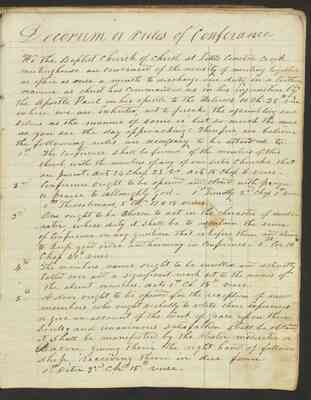 Decorum or rules of Conferance
We the Baptist Church of Christ at Little Creek
meetinghouse are concerned of the necessity of meeting together
as often as once a month to discharge our duty in a better
manner as christ has Commanded us in his injunctions by
the Apostle Paul when spoke to the Hebrews 10 Ch 25 verse
where we are exhorted not to forsake the assembling our
selves as the manner of some is but so much the more
as you see the day approaching Therefore we believe
the following rules are necessary to be attend to
1st The conferance shall be of the members of this
church with the members of any of our sister Churches that
are present Acts 14 Chap 27 &c. Acts 15 Chap 4 verse
2nd Conferance ought to be opened and closed with prayer
& praise to allmighty god 1st Timothy 2nd Chap 1st
1st Thessalonians 5th Ch 17 & 18 verses
3rd One ought to be chosen to act in the character of mode
rator whose duty it shall be to the sense
of conferance on any question that is before them and also
to keep good order and harmony in conferance 1st Cor 14
Chap 40 verse
4th The members names ought to be enrolled and
called over and a significant mark set to the names of
the absent members Acts 1st Ch 15th verse
5th A door ought to be opened for the reception of new
members who ought verbally to relate their experience
or give an account of the work of grace upon their
Souls and unanimous satisfaction shall be obtained
it shall be manifested by the moderator
giving them the right hand of fellow
ship receiving them in due form
1st Peter 3rd Ch 15th verse